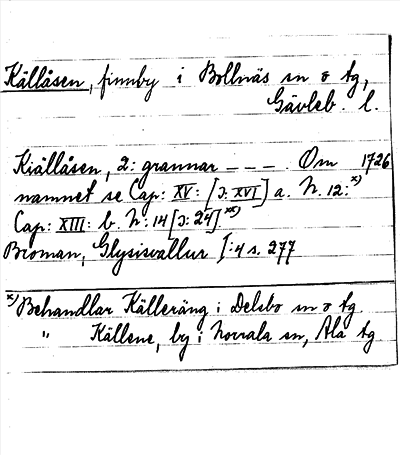 Källåsen, finnby i Bollnäs sn o tg,
Gävleb. l.
Kiällåsen, 2: grannar – – – . Om 1726
namnet se Cap: XV: [ɔ: XVI] a. N. 12: x)
Cap: XIII: b. N: 14 [ɔ: 24] xx)
Broman, Glysisvallur I: 4 s. 277
x) Behandlar Källeräng i Delsbo sn o tg
" Källene, by i Norrala sn, Ala tg